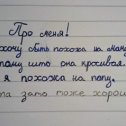 Про меня!
хочу быть похожа на маму
тому што она красивая.
я похожа на папу.
та зато тоже хорош